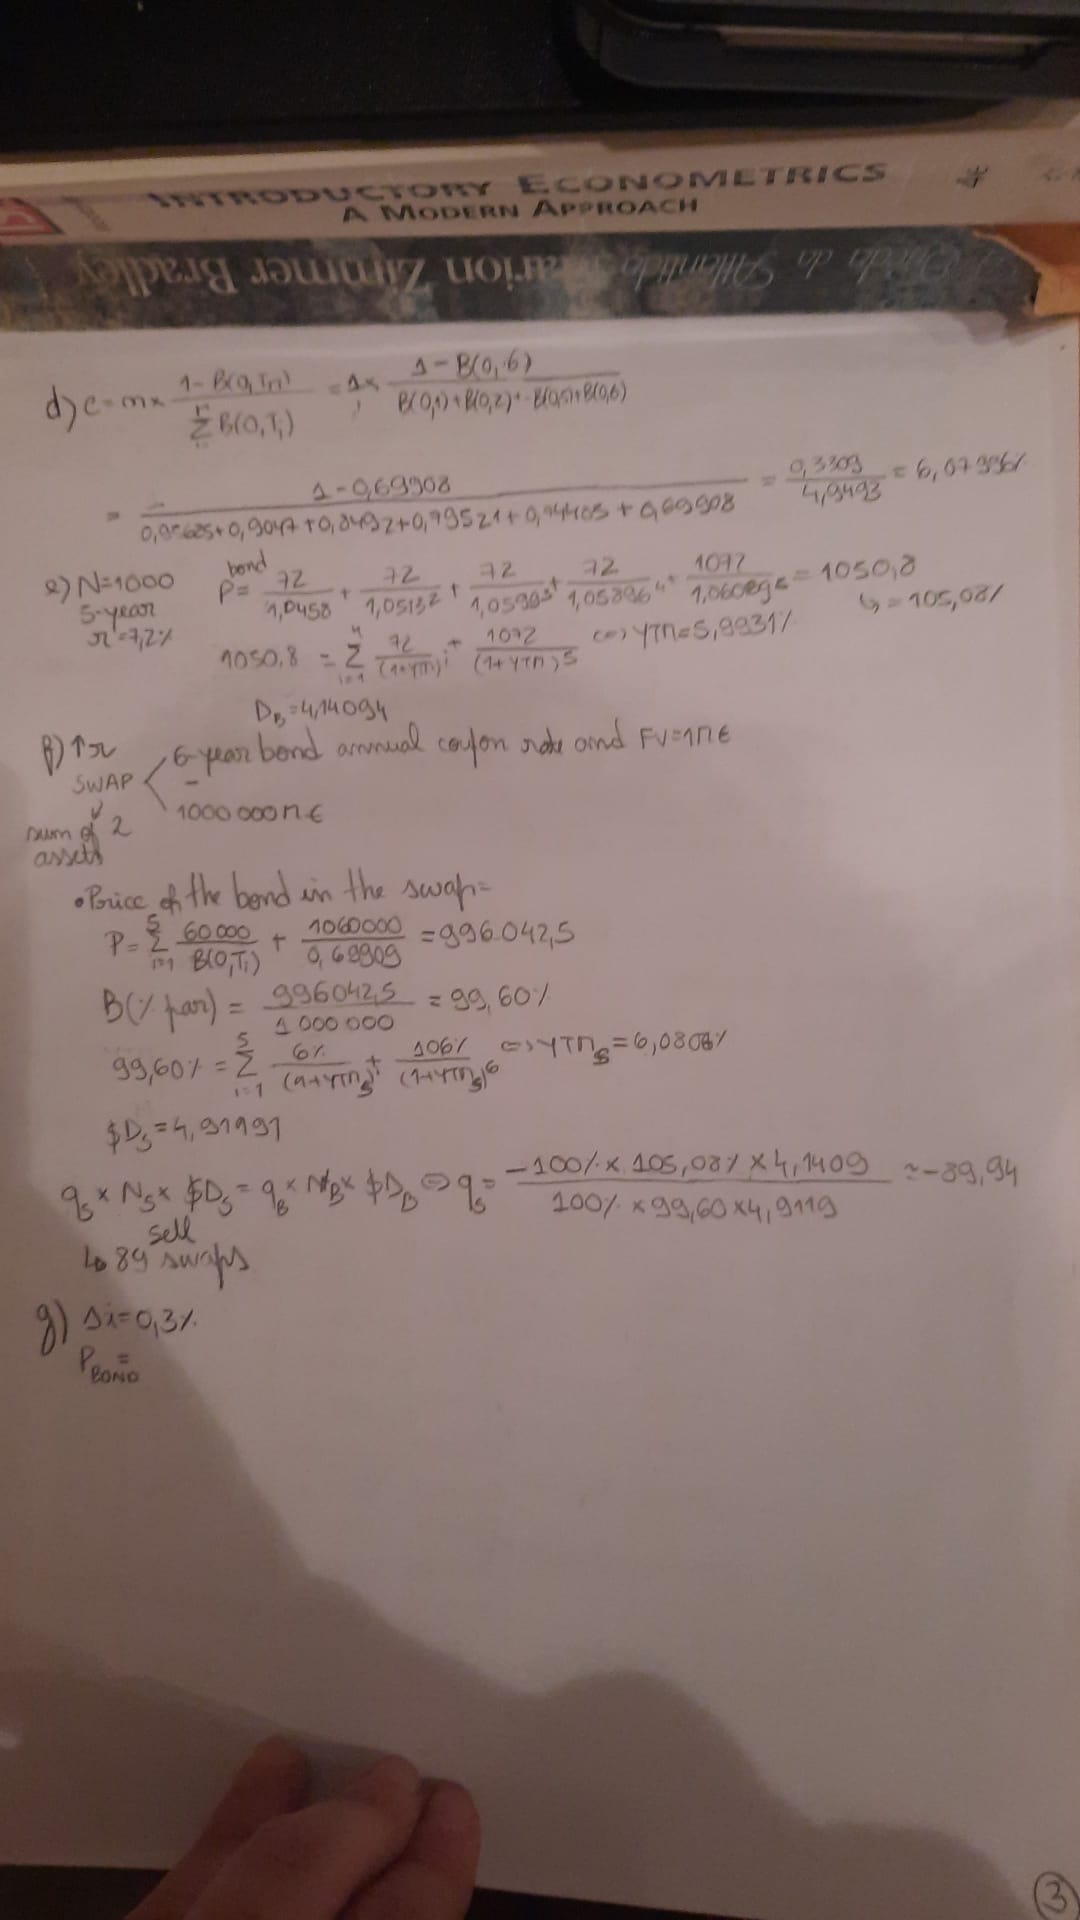 INTRODUCTORY ECONOMETRICS
A MODERN APPROACH
Marion Zimmer Bradley
d) c = m x (1 - B(0,Tn)) / (Σ B(0,Ti)) = 1 x (1 - B(0,6)) / (B(0,1) + B(0,2) + ... B(0,5) + B(0,6))
= (1 - 0,69908) / (0,95625 + 0,9047 + 0,8492 + 0,79521 + 0,74405 + 0,69908) = 0,3309 / 4,9493 = 6,07996%
e) N=1000
5-year
r=7,2%
bond
P = 72/1,0458 + 72/1,05132² + 72/1,05593³ + 72/1,05896⁴ + 1072/1,06089⁵ = 1050,8
↳ = 105,08%
1050,8 = Σ 72/(1+YTM)^i + 1072/(1+YTM)^5 <=> YTM = 5,9931%
D_B = 4,14094
f) ↑r
SWAP
sum of 2
assets
6-year bond annual coupon rate and FV=1M€
-
1000 000M€
• Price of the bond in the swap =
P = Σ 60 000/B(0,Ti) + 1060000/0,69909 = 996.042,5
B(% par) = 996042,5 / 1 000 000 = 99,60%
99,60% = Σ 6%/(1+YTM_S)^i + 106%/(1+YTM_S)^6 <=> YTM_S = 6,0808%
$D_S = 4,91991
q_S x N_S x $D_S = q_B x N_B x $D_B <=> q_S = (-100% x 105,08% x 4,1409) / (100% x 99,60 x 4,9119) ≃ -89,94
sell
↳ 89 swaps
g) Δi = 0,3%
P_BOND =
3